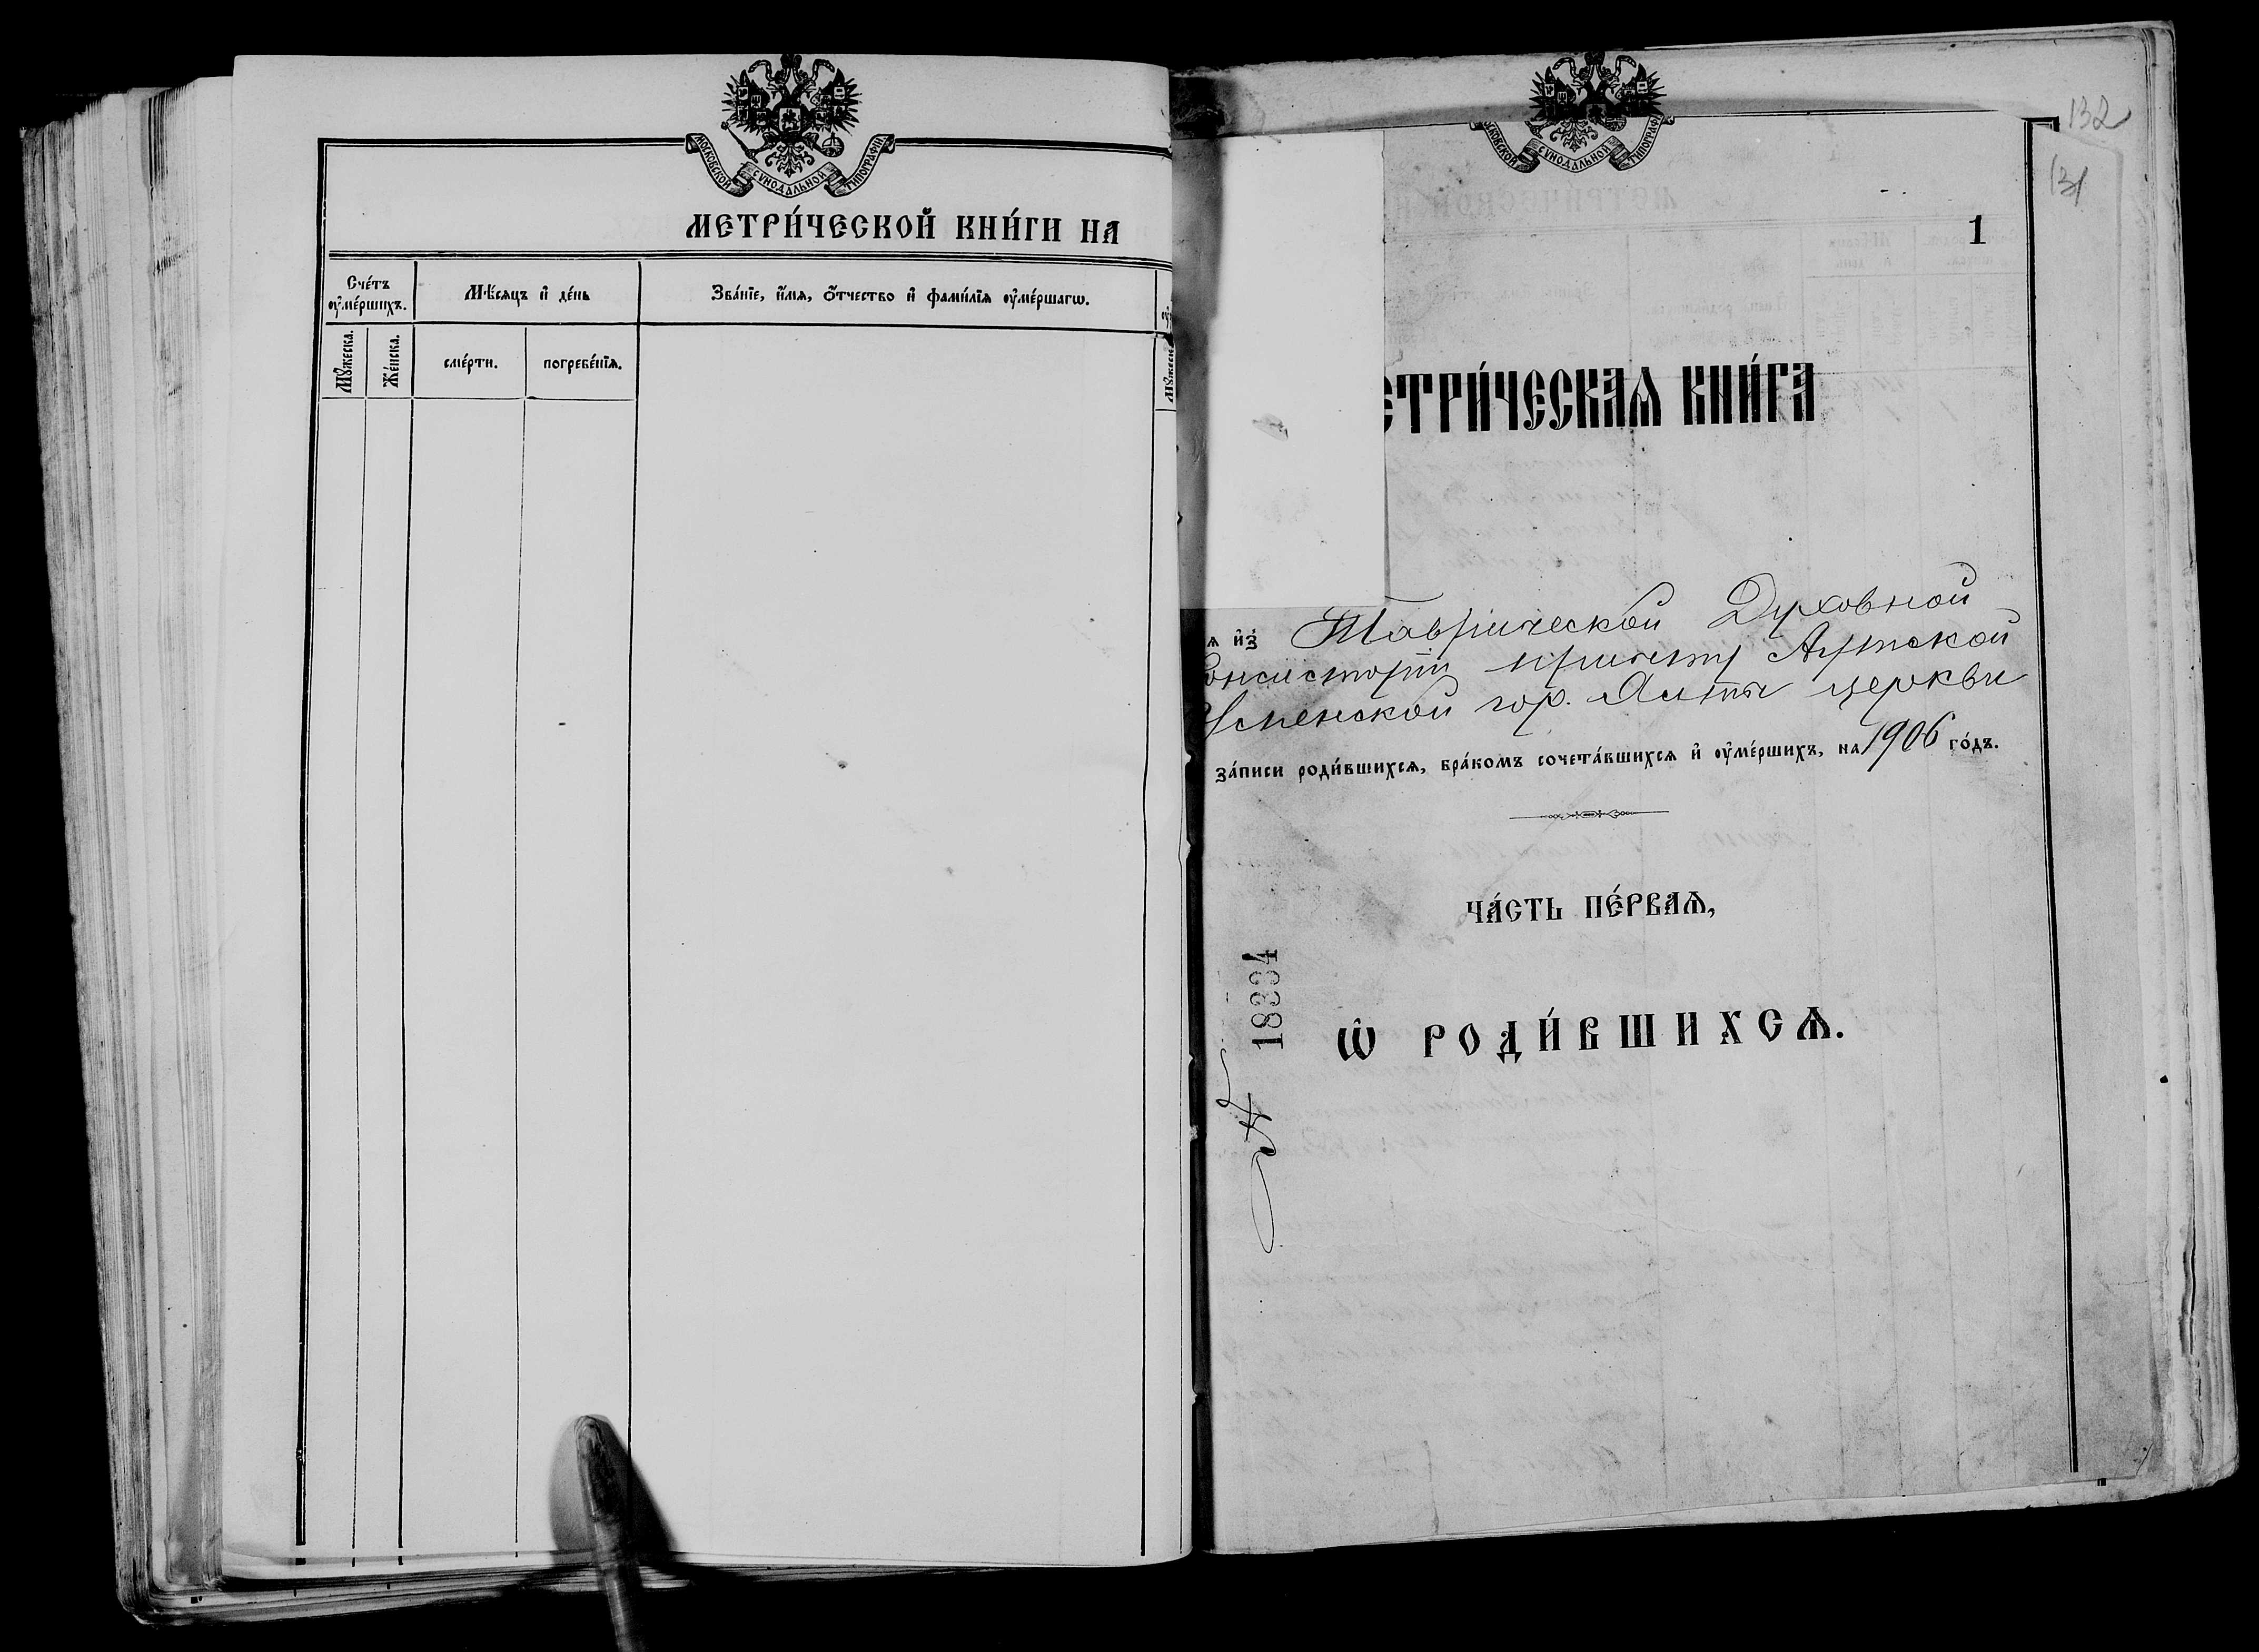 МОСКОВСКОЙ СѴНОДАЛЬНОЙ ТИПОГРАФІИ
МЕТРИ́ЧЕСКОЙ КНИ́ГИ НА
Сче́тъ ᲂу҆ме́ршихъ.
Мѣ́сяцъ и҆ де́нь
Зва́нїе, и҆́мѧ, ѻ҆́тчество и҆ фами́лїѧ ᲂу҆ме́ршагѡ.
Мꙋ́жеска.
Же́нска.
сме́рти.
погребе́нїѧ.
МОСКОВСКОЙ СѴНОДАЛЬНОЙ ТИПОГРАФІИ
132
131
1
ЕТРИ́ЧЕСКАѦ КНИ́ГА
ѧ и҆з̾ Таврической Духовной
Консисторіи причту Аутской
Успенской гор. Ялты церкви
за́писи роди́вшихсѧ, бра́комъ сочета́вшихсѧ и҆ ᲂу҆ме́ршихъ, на 1906 го́дъ.
ЧА́СТЬ ПЕ́РВАѦ,
Ѽ РОДИ́ВШИХСѦ.
18334